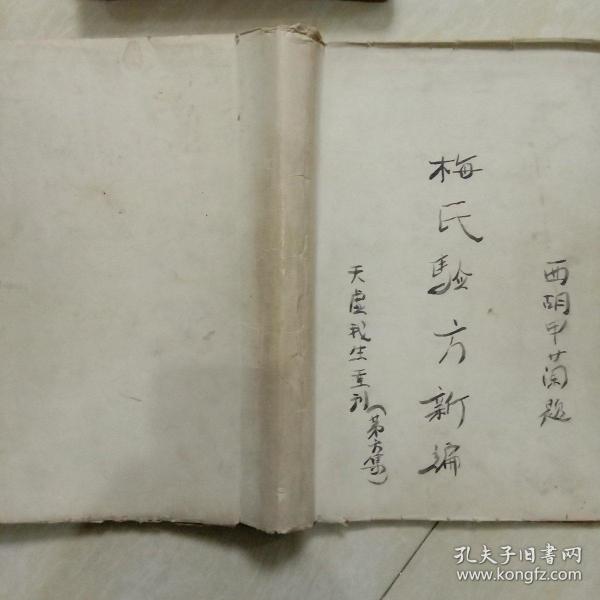 西胡甲菌题
梅氏驗方新编
天虚我生重刊(第六集)
孔夫子旧书网
www.kongfz.com